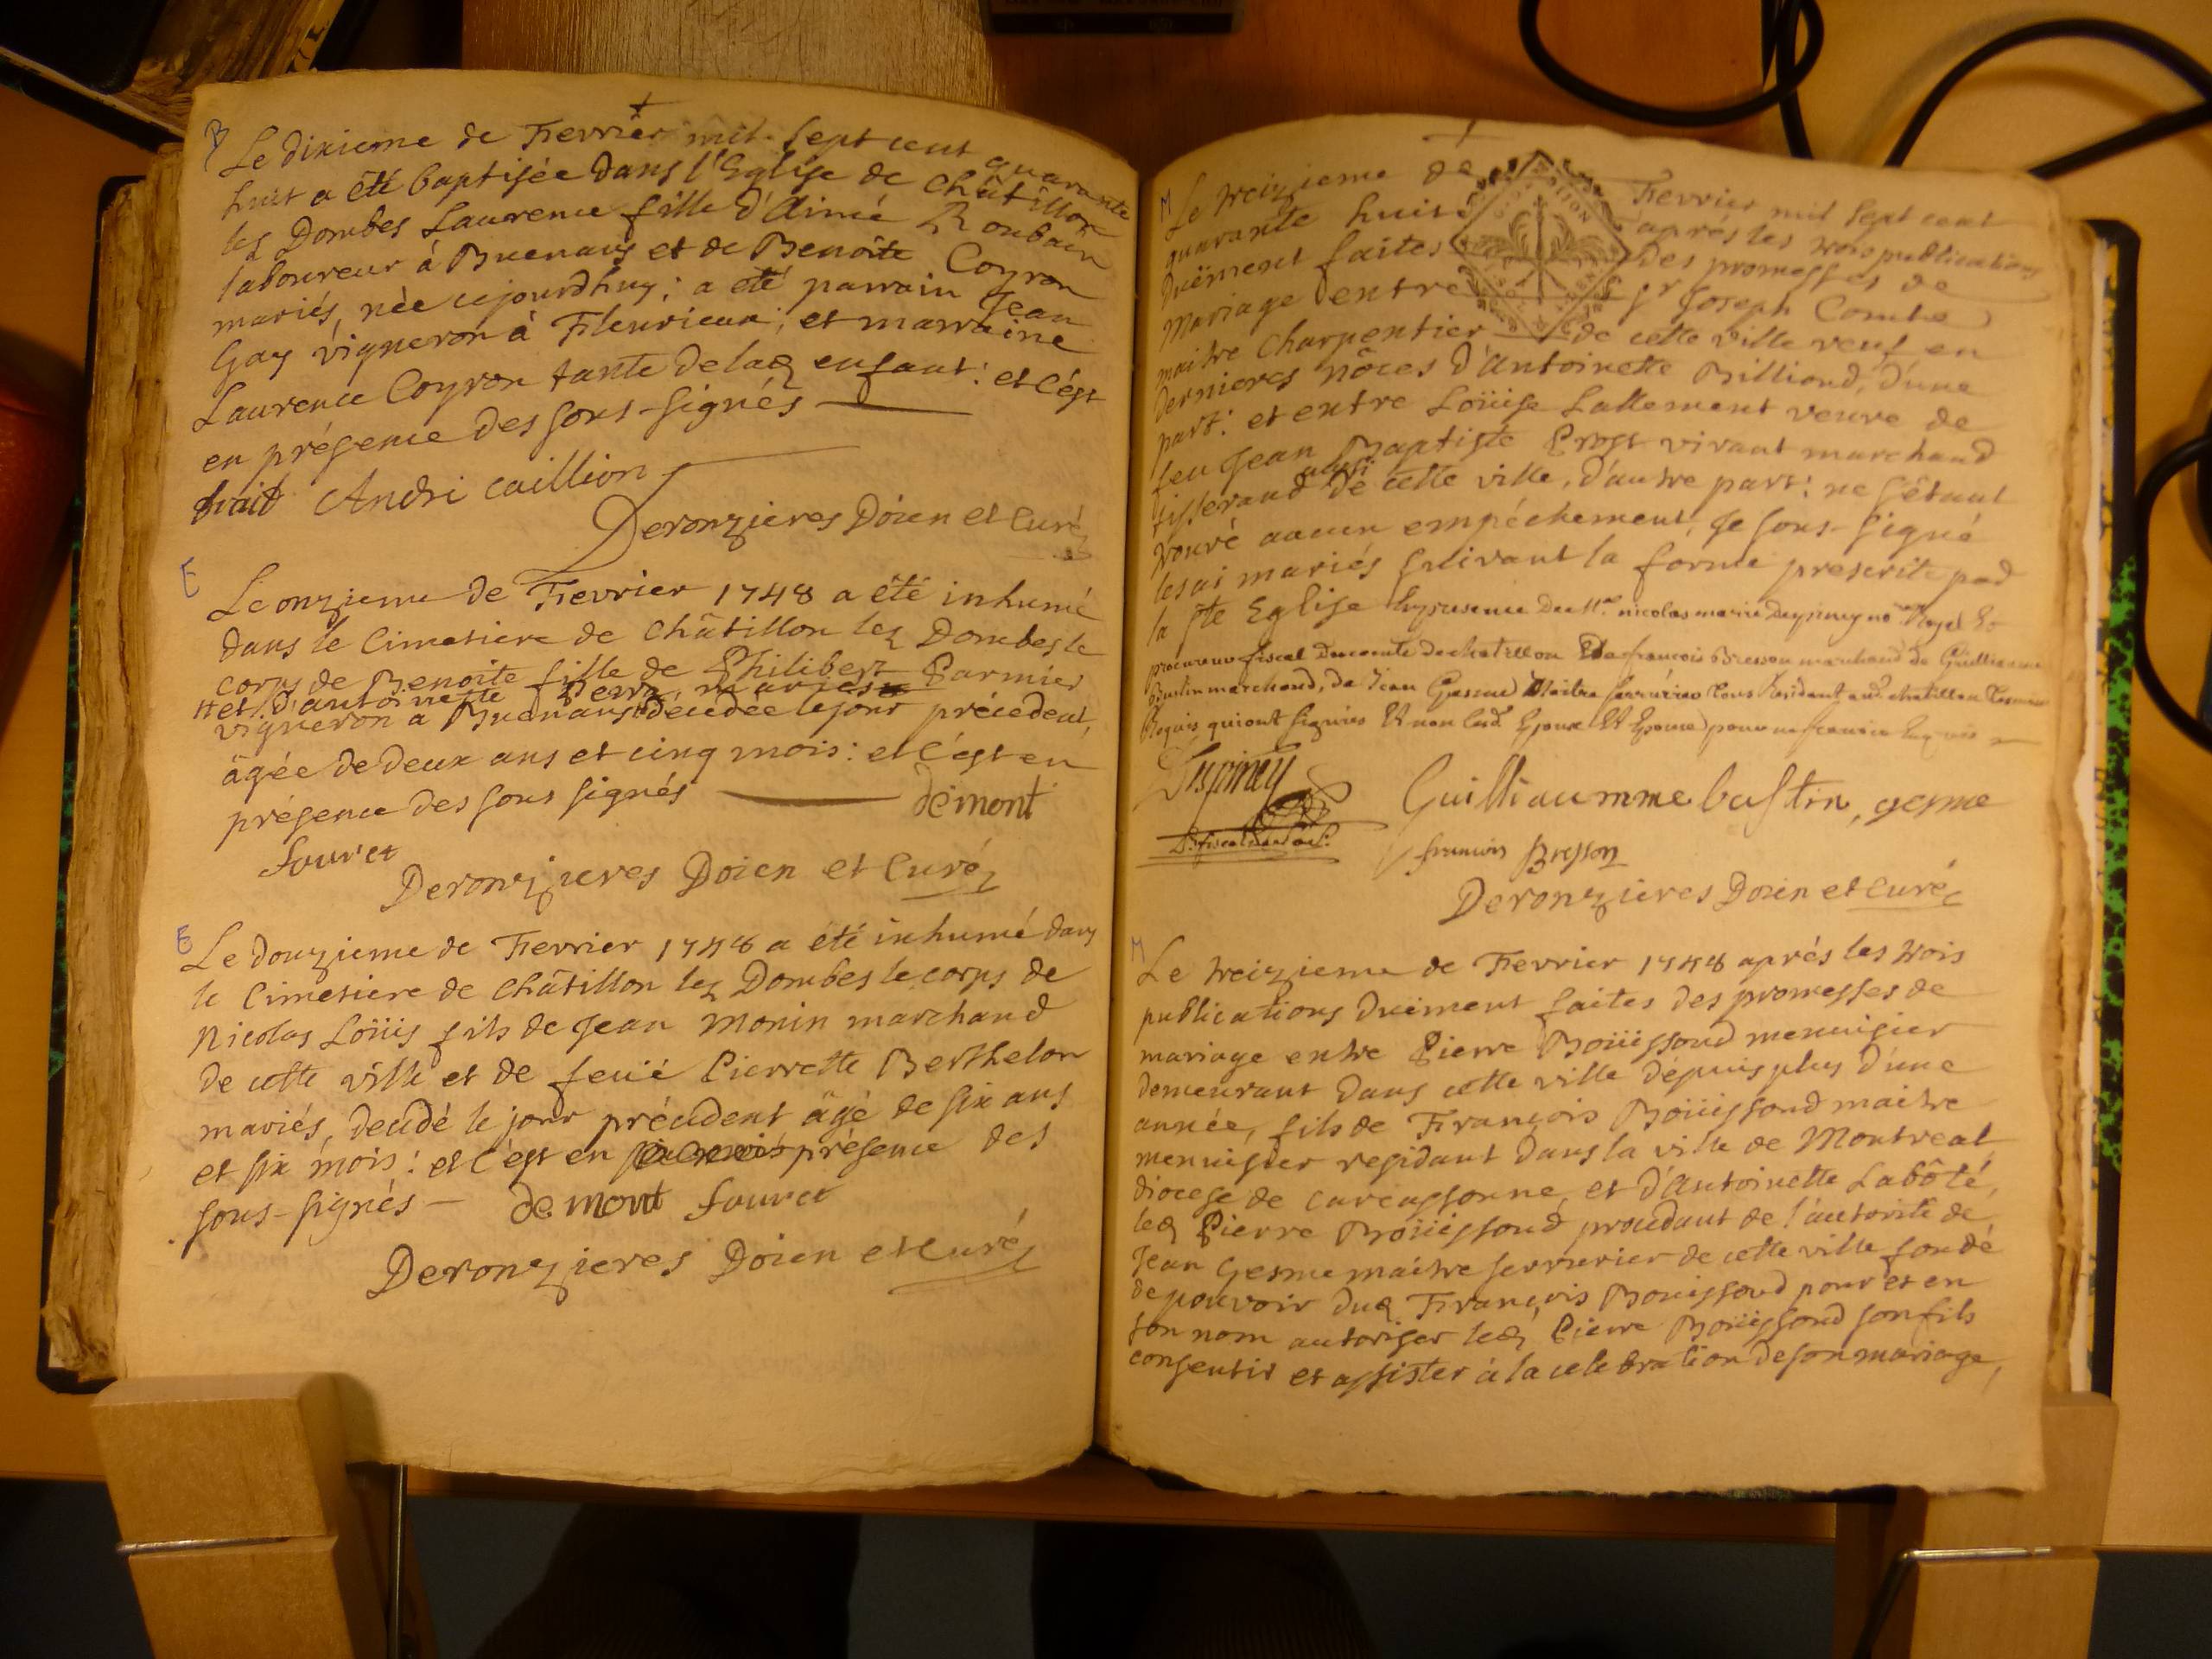 B
Le dixieme de Fevrier mil sept cent quarante
huit a été baptisée dans l'Eglise de Châtillon
les Dombes Laurence fille d'Aimé Roubain
laboureur à Buenans et de Benoite Coyron
mariés, née cejourdhuy; a eté parrain Jean
Gay vigneron à Fleurieux; et marraine
Laurence Coyron tante de lad enfant: et c'ést
en présence des sous-signés
André Caillion
Deronzieres Doien et Curé
E
Le onzieme de Fevrier 1748 a été inhumé
dans le Cimetiere de Châtillon lez Dombes le
corps de Benoite fille de Philibert Parmier
et d'antoinette mariés
vigneron a Buenans décédée le jour précedent,
âgée de deux ans et cinq mois: et c'ést en
présence des sous signés
démont
fouret
Deronzieres Doien et Curé
E
Le douzieme de Fevrier 1748 a été inhumé dans
le Cimetiere de Châtillon lez Dombes le corps de
Nicolas Loüis fils de Jean Monin marchand
de cette ville et de feüe Pierrette Berthelon
mariés, decédé le jour précedent âgé de six ans
et six mois: et c'ést en présence des
sous-signés - demont fouret
Deronzieres Doien et curé
M
Le treizieme de Fevrier mil sept cent
quarante huit après les trois publications
duëment faites des promesses de
Mariage entre Sr Joseph Comte
maitre Charpentier de cette ville veuf en
dernieres nôces d'Antoinette Billioud, d'une
part: et entre Loüise Lallement veuve de
feu Jean Baptiste Prost vivant marchand
tisserand aussi de cette ville, d'autre part: ne s'étant
trouvé aucun empéchement, Je sous-signé
les ai mariés suivant la forme prescrite par
la Ste Eglise En presence de Me nicolas marie Duspiney no Royal Et
procureur fiscal du comté de chatillon De francois Bresson marchand de Guilliaume
Bustin marchand, de Jean Gesme Maitre serrurier tous Residant aud chatillon temoins
Requis qui ont signés Et non lesd Epoux Et Epouse pour ne scavoir Enquis
Duspiney
Guilliaumme bustin, gesme
francois Bresson
Deronzieres Doien et curé
M
Le treizieme de Fevrier 1748 aprés les trois
publications duëment faites des promesses de
mariage entre Pierre Boüissoud menuisier
demeurant dans cette ville dépuis plus d'une
année, fils de François Boüissoud maitre
menuisier residant dans la ville de Montreal
diocese de Carcassonne, et d'Antoinette Labôté,
led Pierre Boüissoud procedant de l'autorité de
Jean Gesme maitre serrurier de cette ville fondé
de pouvoir dud François Bouissoud pour et en
son nom autoriser led Pierre Boüissoud son fils
consentir et assister à la celebration de son mariage,